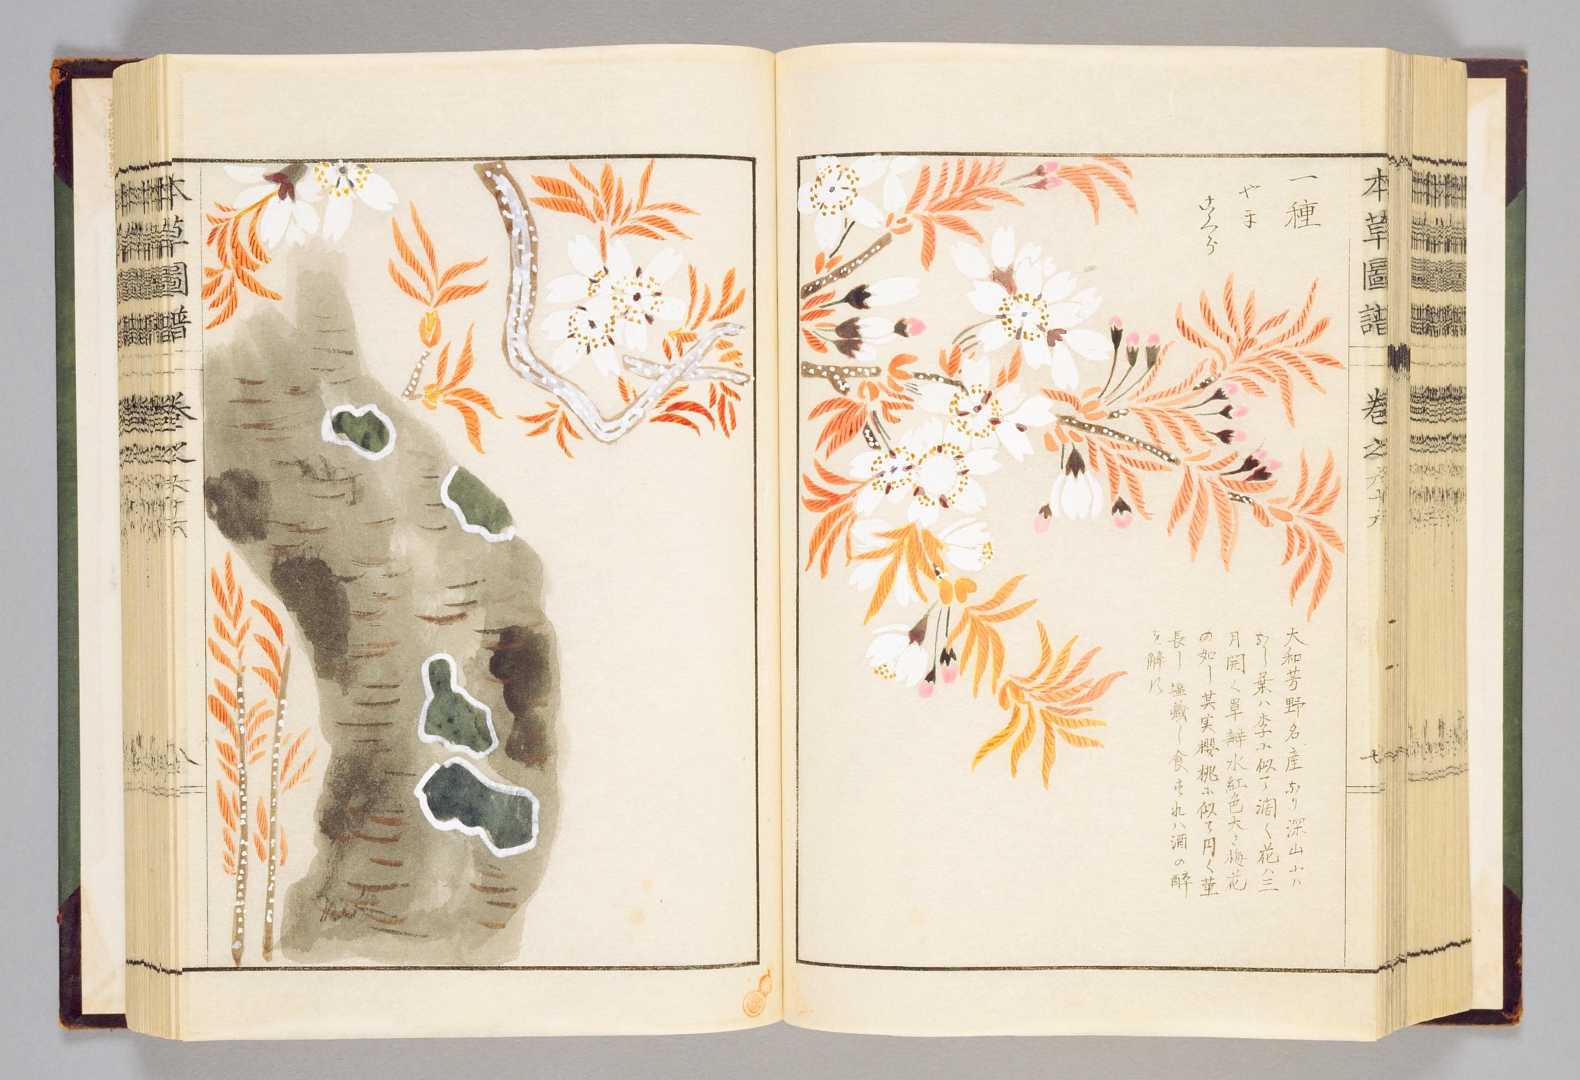 本草圖譜 巻之六十六
七
一種
やま
さくら
大和芳野名産なり深山ニハ
なし葉ハ李ニ似て濶く花ハ三
月開く單辨水紅色大さ梅花
の如し其実櫻桃ニ似て円く莖
長し塩蔵し食すれハ酒の酔
を解す
本草圖譜 巻之六十六
八